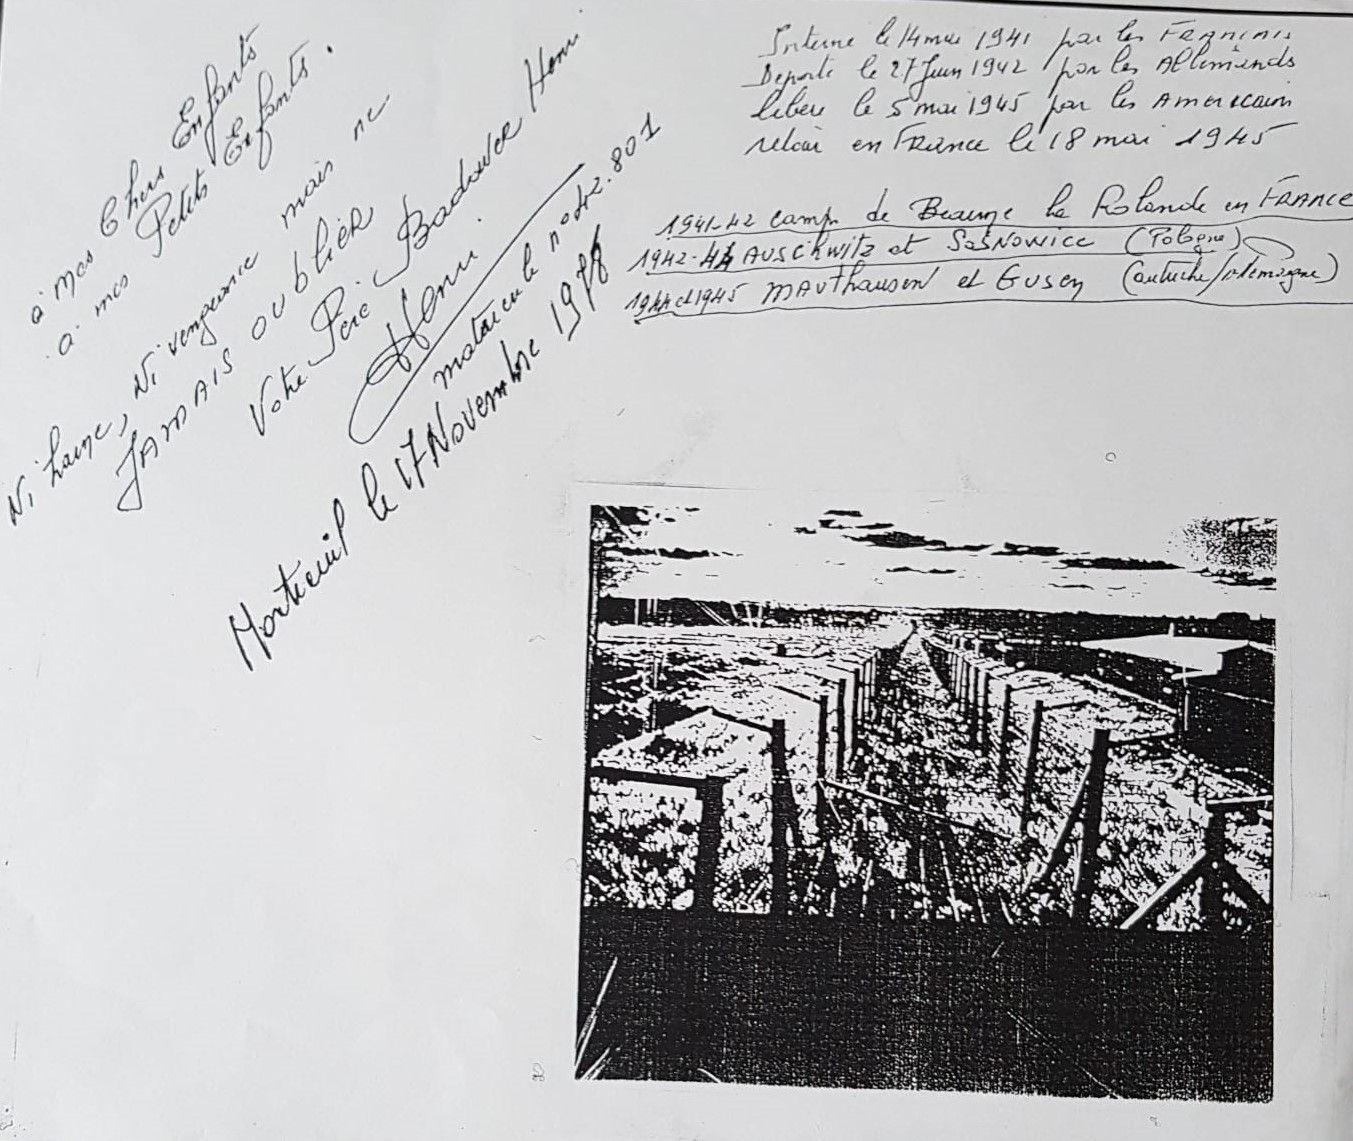 à mes Chers Enfants
à mes Petits Enfants.
Ni haine, Ni vengeance mais ne
JAMAIS OUBLIER
Votre Père Badower Henri
Henri.
matricule n° 42.801
Montreuil le 17 Novembre 1978
Interne le 14 mai 1941 par les FRANCAIS
Deporte le 27 Juin 1942 par les Allemands
libere le 5 mai 1945 par les Americain
retour en France le 18 mai 1945
1941-42 camp de Beaune la Rolande en FRANCE
1942-44 AUSCHWITZ et SOSNOWICE (Pologne)
1944 et 1945 MAUTHAUSEN et GUSEN (autriche/allemagne)